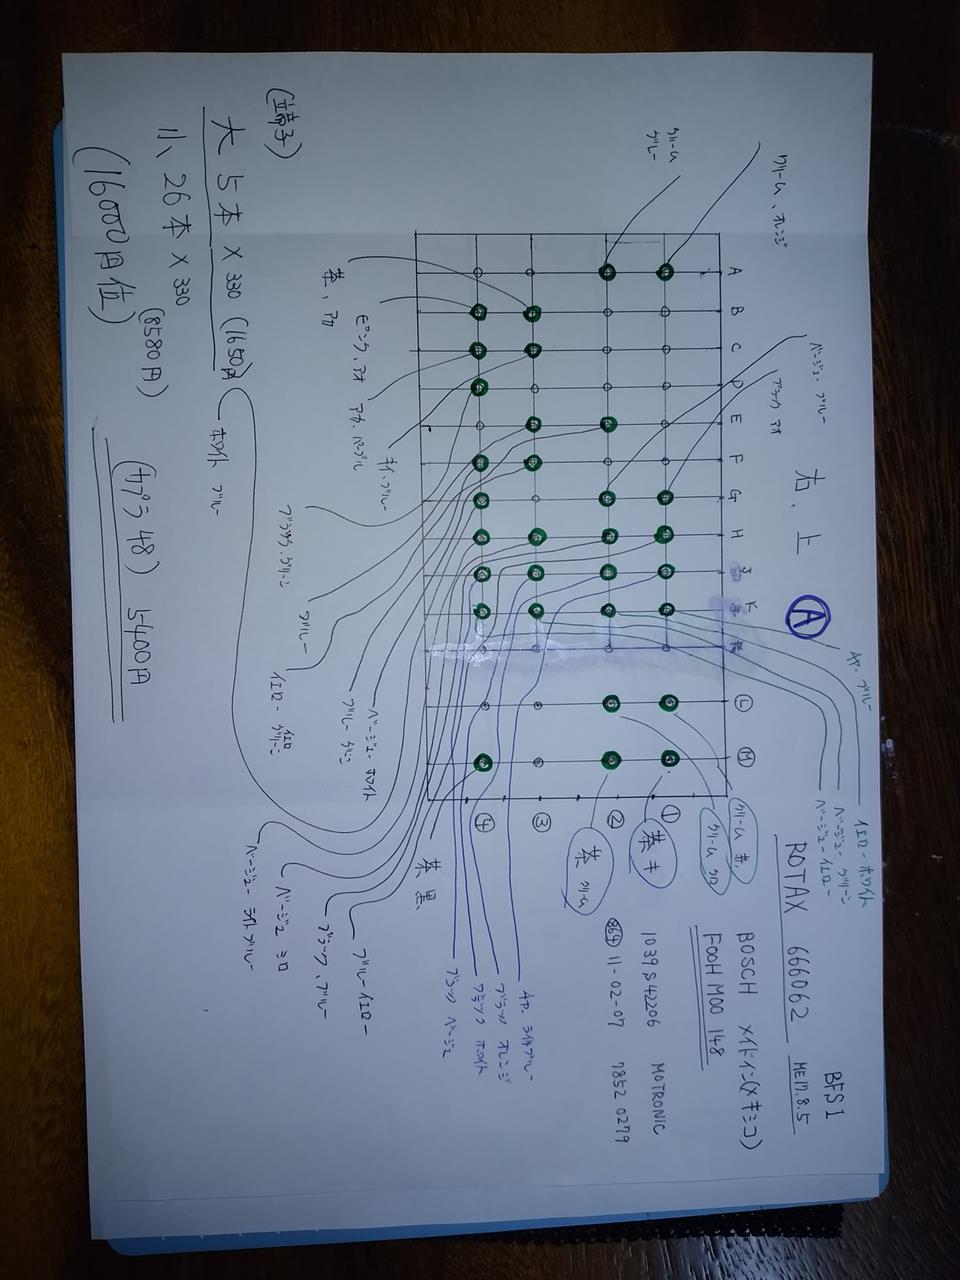 BFS I
ROTAX 666062 ME17.8.5
BOSCH メイドイン(メキシコ)
F00H M00 148
1039S42206 MOTRONIC
864 11-02-07 7852 0279
右、上
A
クリーム、オレンジ
クリーム
グレー
ベージュ・ブルー
ブラック アオ
ブルー
イエロー・ホワイト
ベージュ・グリーン
ベージュ・イエロー
クリーム 赤
クリーム クロ
茶 キ
茶 クリーム
A B C D E F G H J K L M
① ② ③ ④
茶、アカ
ピンク、アオ
アカ、パープル
キイ、ブルー
ブラック、グリーン
ブルー
イエロー グリーン
イエロー
ブルー グリン
ベージュ・ホワイト
ホワイト ブルー
茶 黒
ベージュ・ライトブルー
ベージュ シロ
ブラック、ブルー
ブルー・イエロー
ブラック ベージュ
ブラック ホワイト
ブラック オレンジ
ライトブルー
(端子)
大 5本 × 330 (1650円)
小 26本 × 330
(8580円)
(16000円位)
(カプラ 48) 5400円